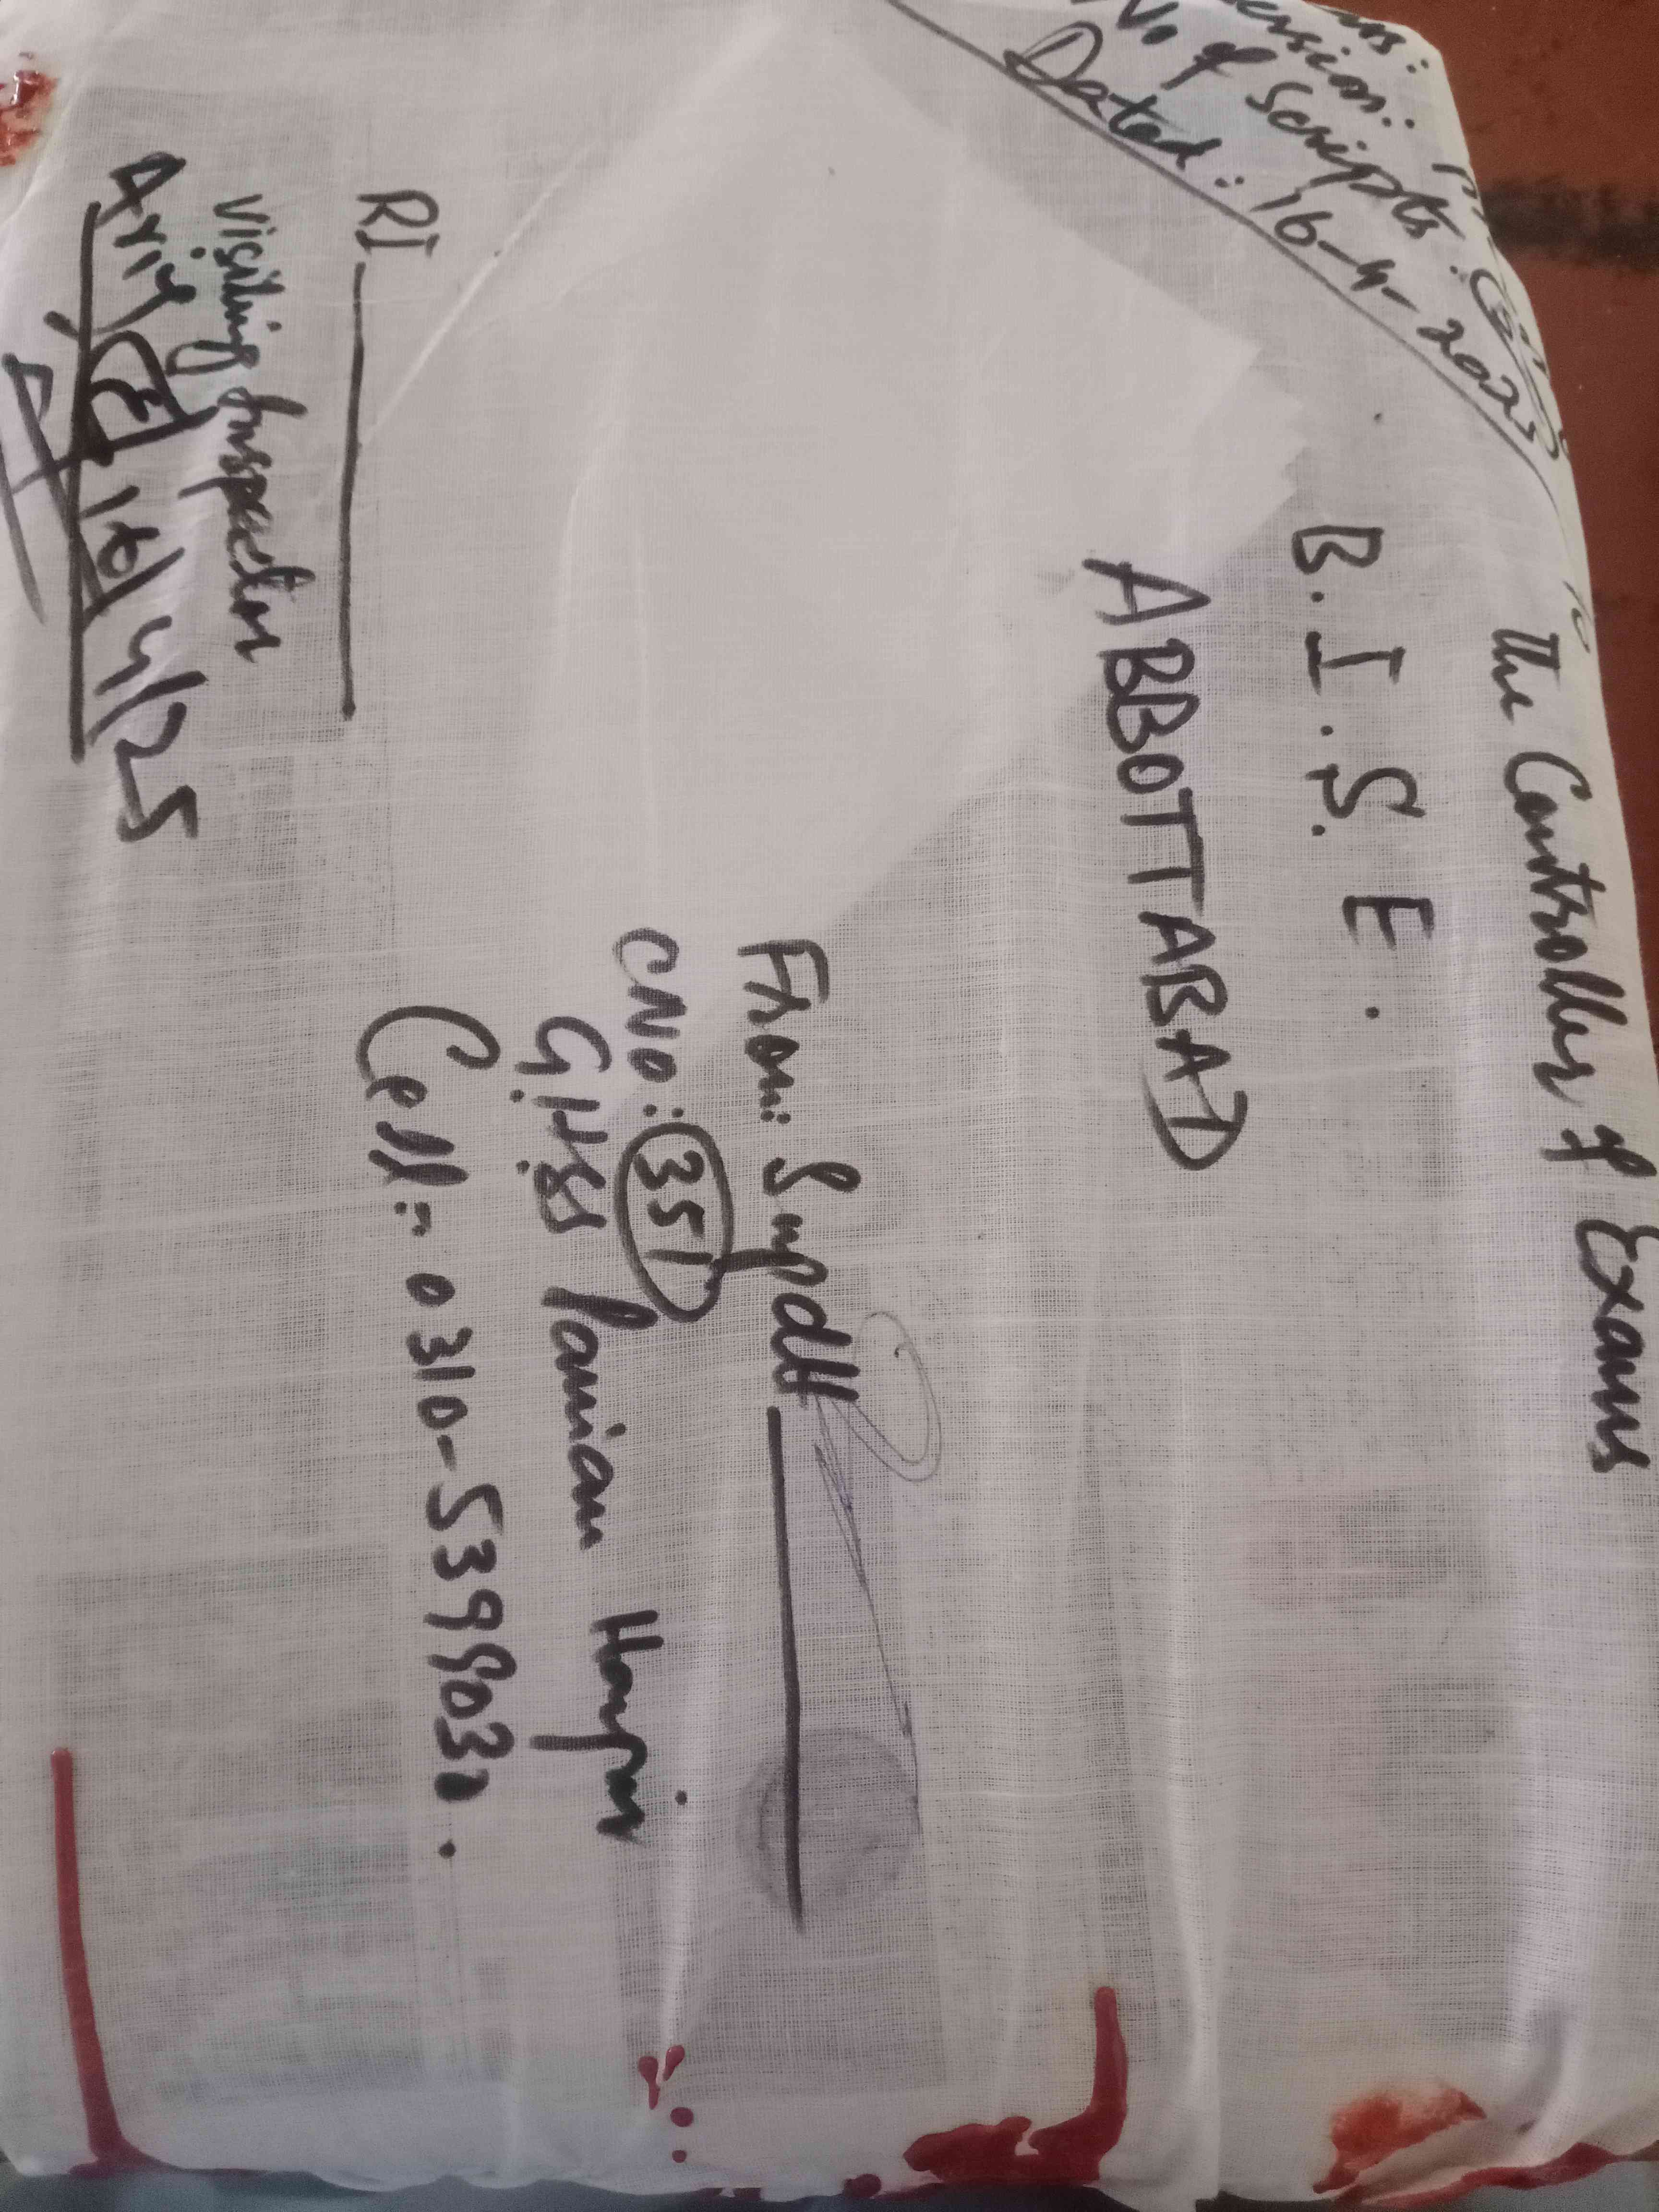 No of Scripts:
Dated: 16-4-2025
The Controller of Exams
B.I.S.E.
ABBOTTABAD
From: Supdtt
CNo: 351
GHSS Panian Haripur
Cell:- 0310-5399030.
RI
Visiting Inspector
16/4/25